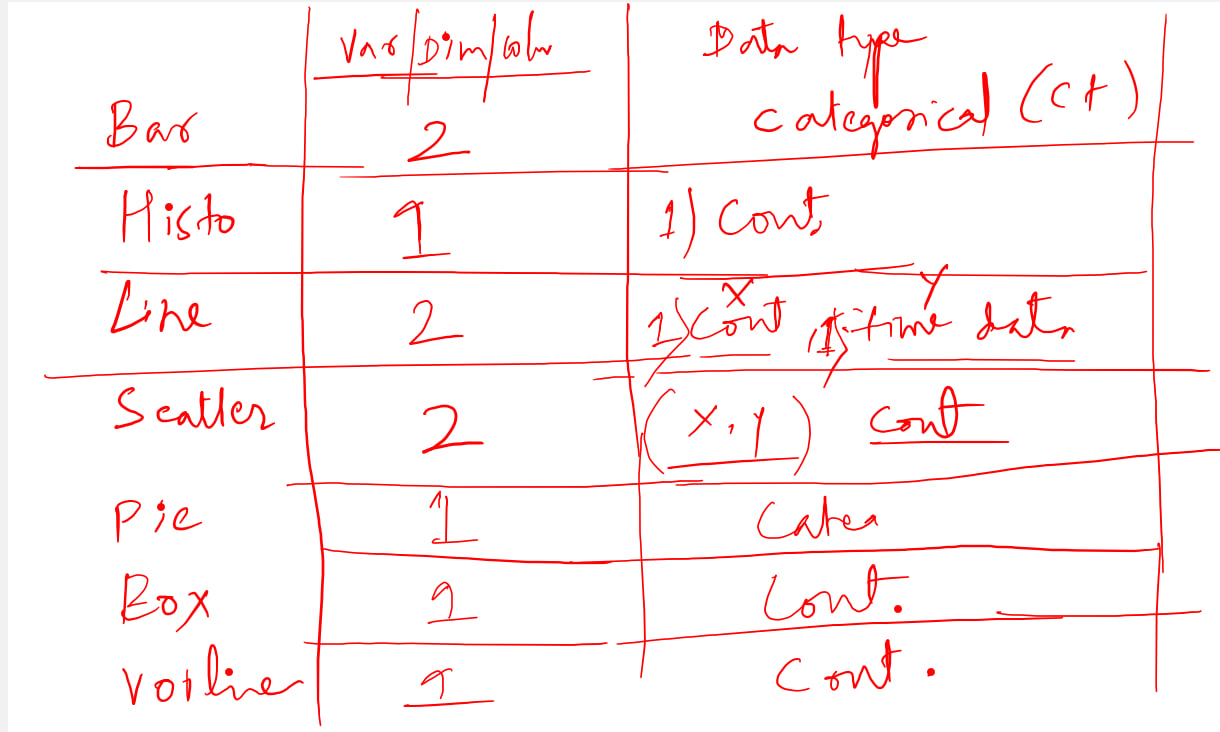 Var/Dim/colm Data type
Bar 2 categorical (ct)
Histo 1 1) Cont,
X Y
Line 2 1) Cont, 1) time data
Scatter 2 (x, y) cont
Pie 1 Cate
Box 1 Cont.
1 Cont.